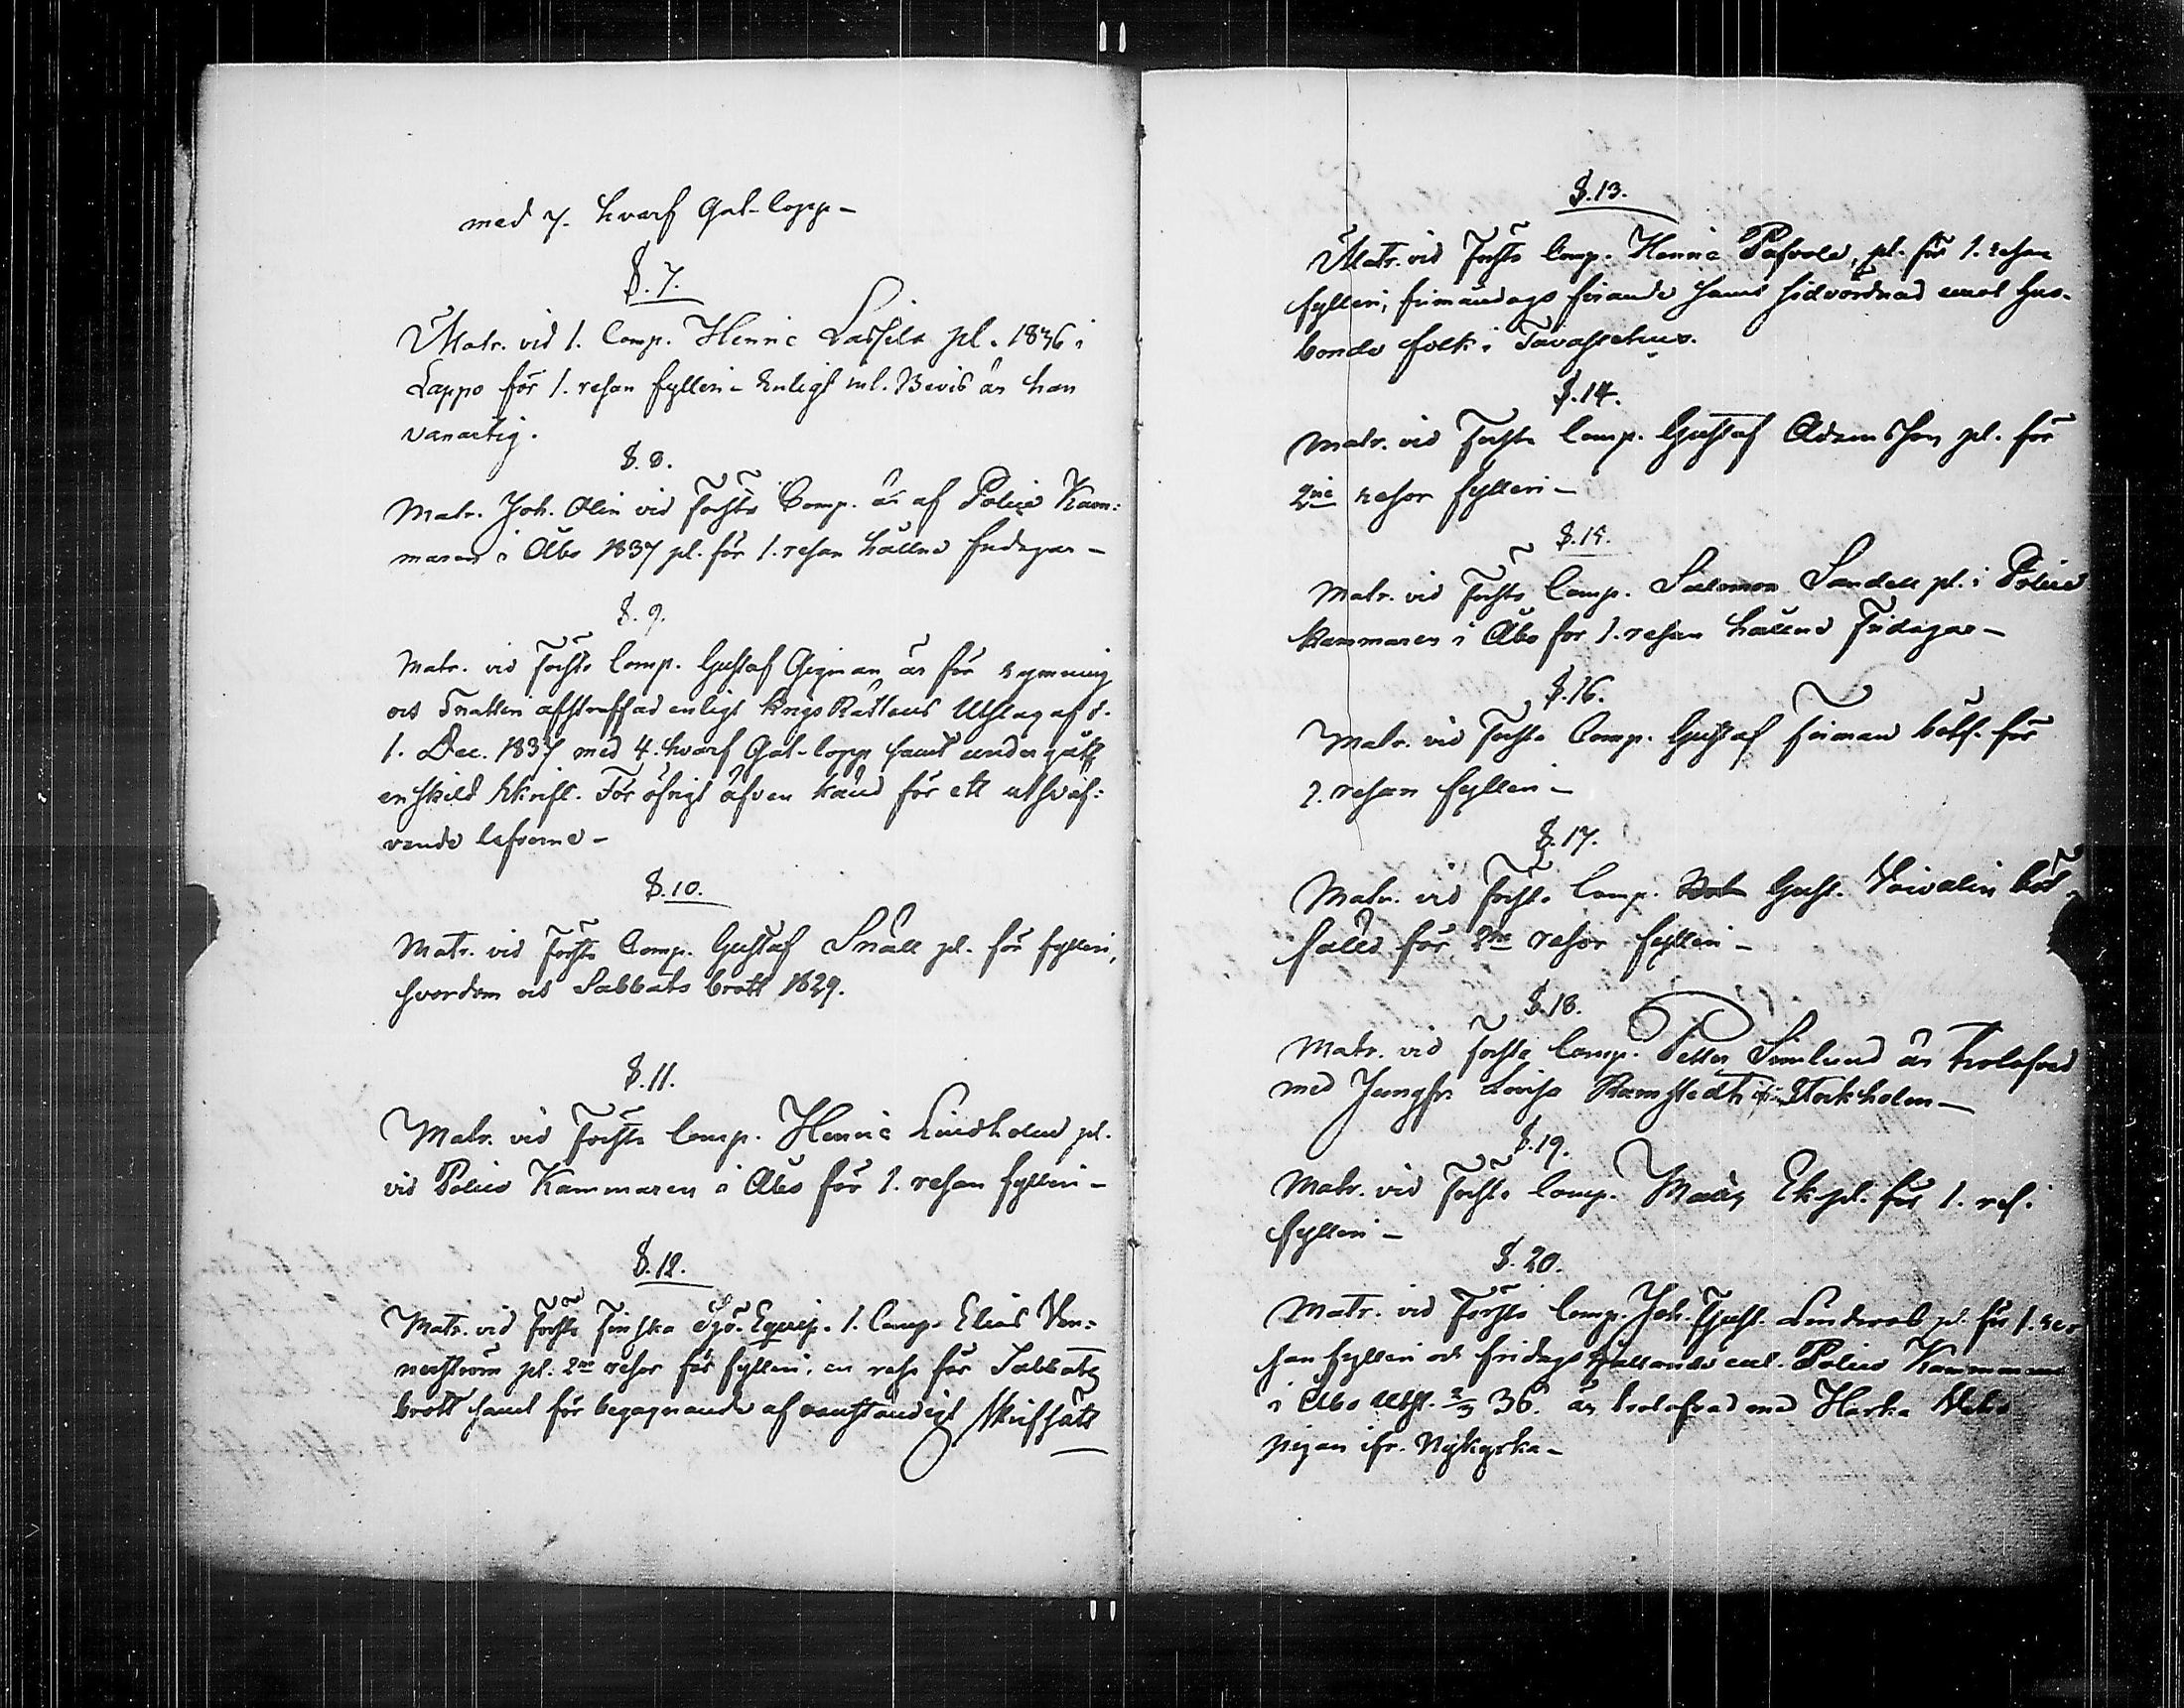 med 7. hvarf Gat-lopp-
§.7.
Matr. vid 1. Comp. Henric Lassila pl. 1836 i
Lappo för 1. resan fylleri- Enligt inl. Bevis är han
vanartig.
§.8.
Matr. Joh. Olin vid första Comp. är af Police Kam:
maren i Åbo 1837 pl. för 1. resan hållne fridagar-
§.9.
Matr. vid första Comp. Gustaf Gigman är för rymning
och Snatteri afstraffad enligt KrigsRättens Utslag af d.
1. Dec. 1837 med 4. hvarf Gat-lopp samt undergått
enskild skrift. För öfrigt äfven känd för ett utsväf:
vande lefverne-
§.10.
Matr. vid första Comp. Gustaf Snäll pl. för fylleri,
svordom och Sabbats brott 1829.
§.11.
Matr. vid första Comp. Henric Lindholm pl.
vid Police Kammaren i Åbo för 1. resan fylleri-
§.12.
Matr. vid första Finska Sjö-Equip. 1. Comp. Elias Ven:
nerström pl. 2ne resor för fylleri, en resa för Sabbats
brott samt för begagnande af oanständigt skrifsätt
§.13.
Matr. vid första Comp. Henric Pafvola, pl. för 1. resan
fylleri, frimåndags firande samt sidvördnad emot hus-
bonde folk i Tavastehus.
§.14.
Matr. vid första Comp. Gustaf Adamsson pl. för
2ne resor fylleri-
§.15.
Matr. vid första Comp. Salomon Sandell pl. i Police
kammaren i Åbo för 1. resan hållne Fridagar-
§.16.
Matr. vid första Comp. Gustaf Firman bötf. för
2. resan fylleri-
§.17.
Matr. vid första Comp. Gust. Voivalin böt-
fälld för 2ne resor fylleri-
§.18.
Matr. vid första Comp. Petter Simelund är trolofvad
med Jungfr. Lovisa Ramstedt i Stockholm-
§.19.
Matr. vid första Comp. Matts Ek pl. för 1. res.
fylleri-
§.20.
Matr. vid första Comp. Joh. Gust. Linderoos pl. för 1. re-
san fylleri och fridags hållande enl. Police Kammarens
i Åbo Utsl. 2/3 36. är trolofvad med
pigan ifr. Nykyrka-